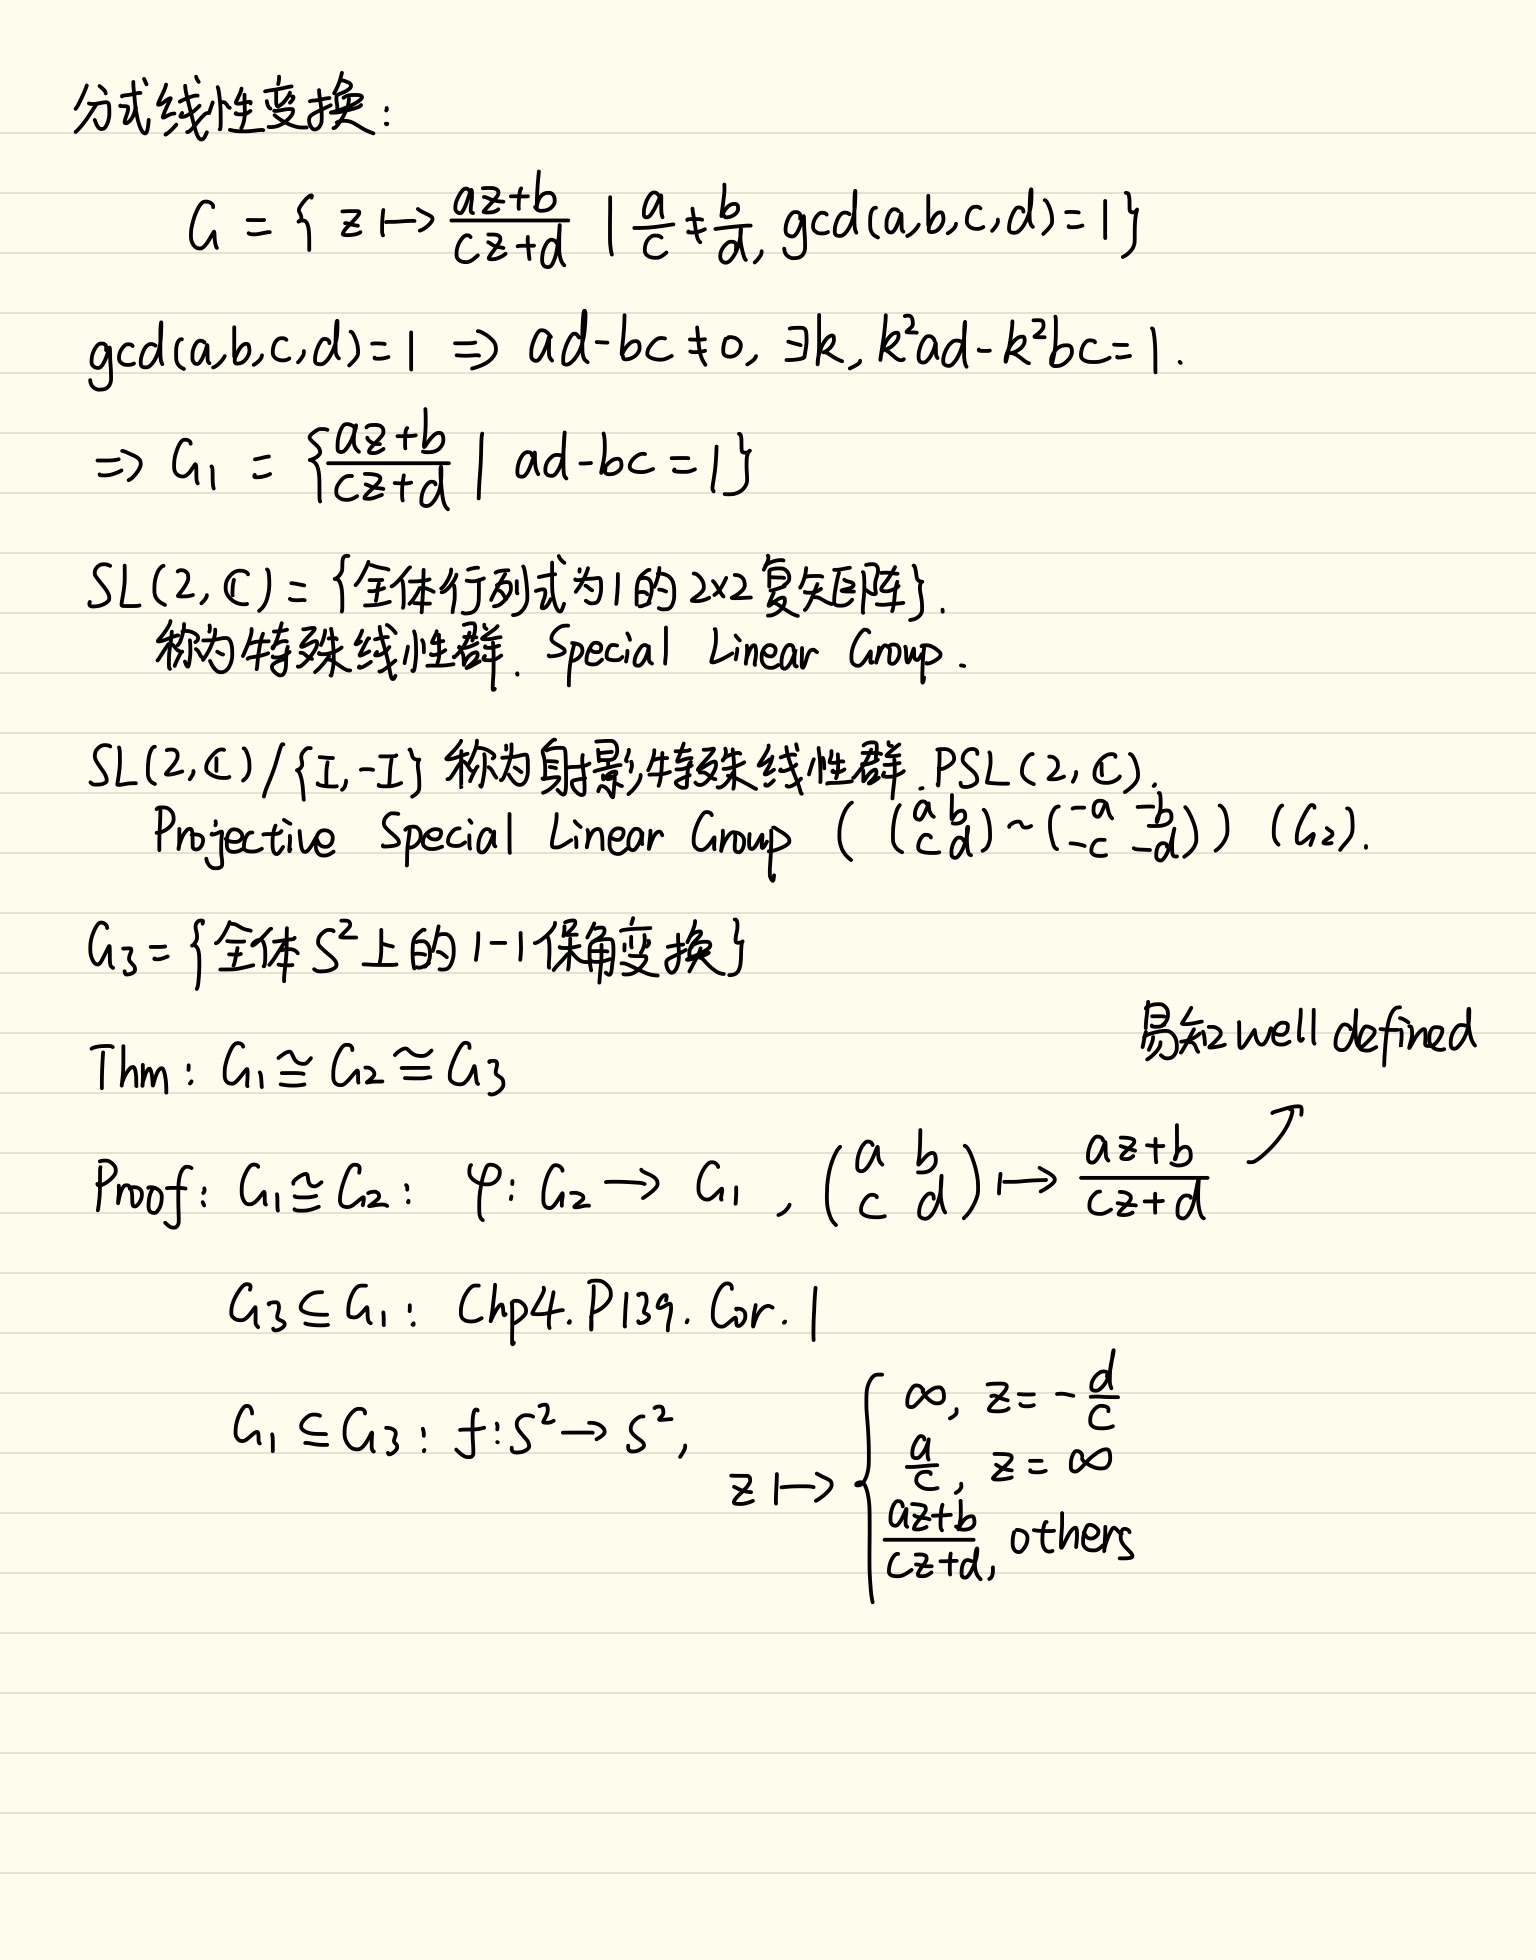 分式线性变换:
G = { z ↦ (az+b)/(cz+d) | a/c ≠ b/d, gcd(a,b,c,d)=1}
gcd(a,b,c,d)=1 ⇒ ad-bc≠0, ∃k, k²ad-k²bc=1.
⇒ G₁ = {(az+b)/(cz+d) | ad-bc=1}
SL(2,ℂ)={全体行列式为1的2×2复矩阵}.
称为特殊线性群. Special Linear Group.
SL(2,ℂ)/{I,-I} 称为射影特殊线性群. PSL(2,ℂ).
Projective Special Linear Group ( (a b; c d) ~ (-a -b; -c -d) ) (G₂).
G₃={全体S²上的1-1保角变换}
易知well defined
Thm: G₁≅G₂≅G₃
Proof: G₁≅G₂: φ: G₂→G₁, (a b; c d) ↦ (az+b)/(cz+d) ↗
G₃⊆G₁: Chp4. P139. Cor. 1
G₁⊆G₃: f:S²→S²,
z ↦ { ∞, z=-d/c
a/c, z=∞
(az+b)/(cz+d), others